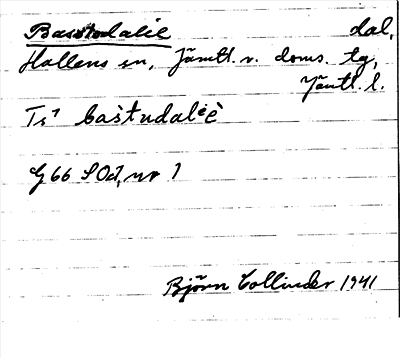 Basstudalie dal,
Hallens sn, Jämtl. v. doms. tg,
Jämtl. l.
Ts1 bàstudalèè
G 66 SOd, nr 1
Björn Collinder 1941